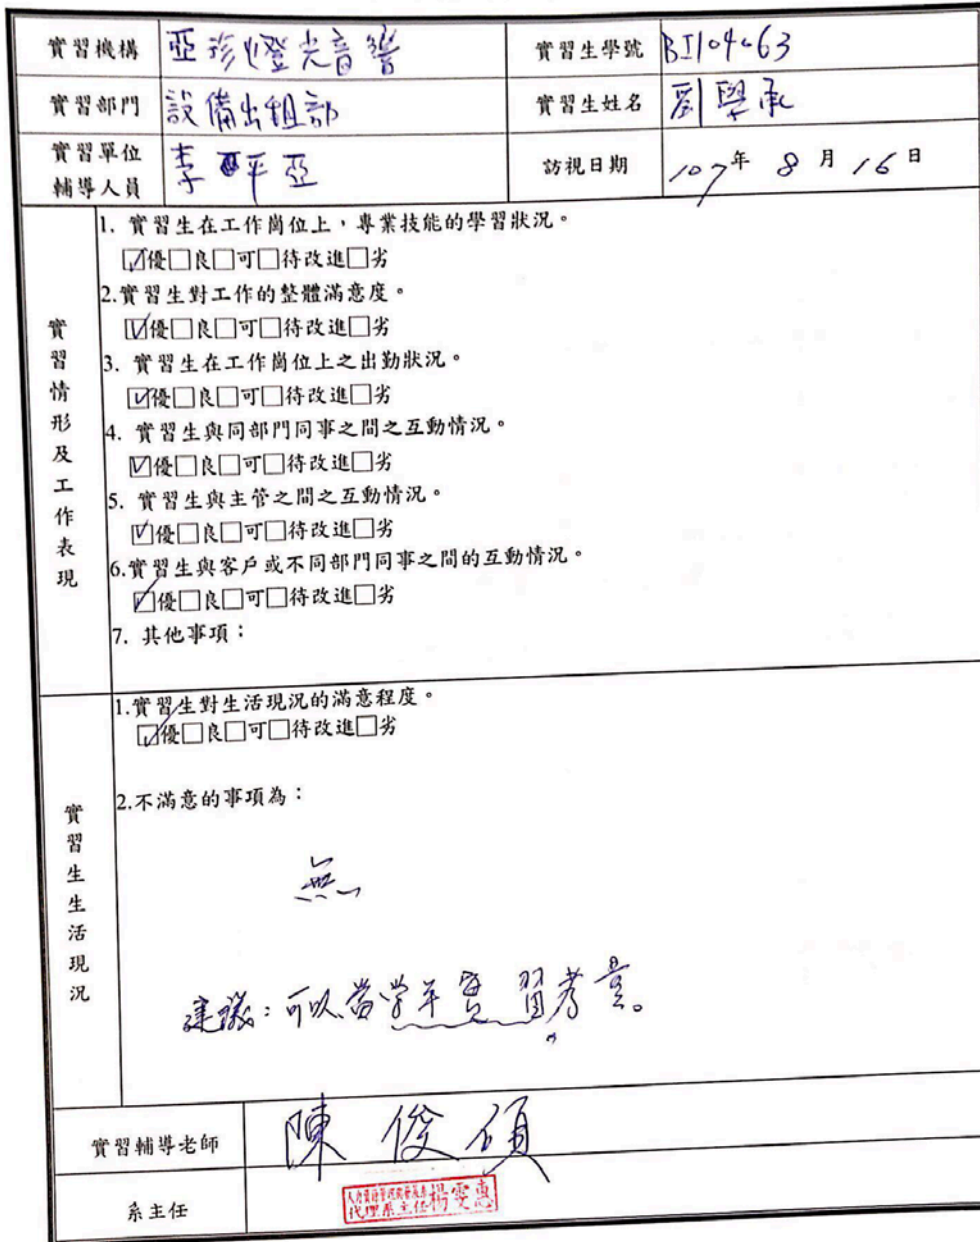 實習機構 亞珍燈光音響 實習生學號 BI104063
實習部門 設備出租部 實習生姓名 劉學承
實習單位輔導人員 李平亞 訪視日期 107年 8 月 16日
實習情形及工作表現
1. 實習生在工作崗位上，專業技能的學習狀況。
☑優□良□可□待改進□劣
2.實習生對工作的整體滿意度。
☑優□良□可□待改進□劣
3. 實習生在工作崗位上之出勤狀況。
☑優□良□可□待改進□劣
4. 實習生與同部門同事之間之互動情況。
☑優□良□可□待改進□劣
5. 實習生與主管之間之互動情況。
☑優□良□可□待改進□劣
6.實習生與客戶或不同部門同事之間的互動情況。
☑優□良□可□待改進□劣
7. 其他事項：
實習生生活現況
1.實習生對生活現況的滿意程度。
☑優□良□可□待改進□劣
2.不滿意的事項為：
無
建議：可以當學年實習考量。
實習輔導老師 陳俊碩
系主任 代理系主任楊雯惠